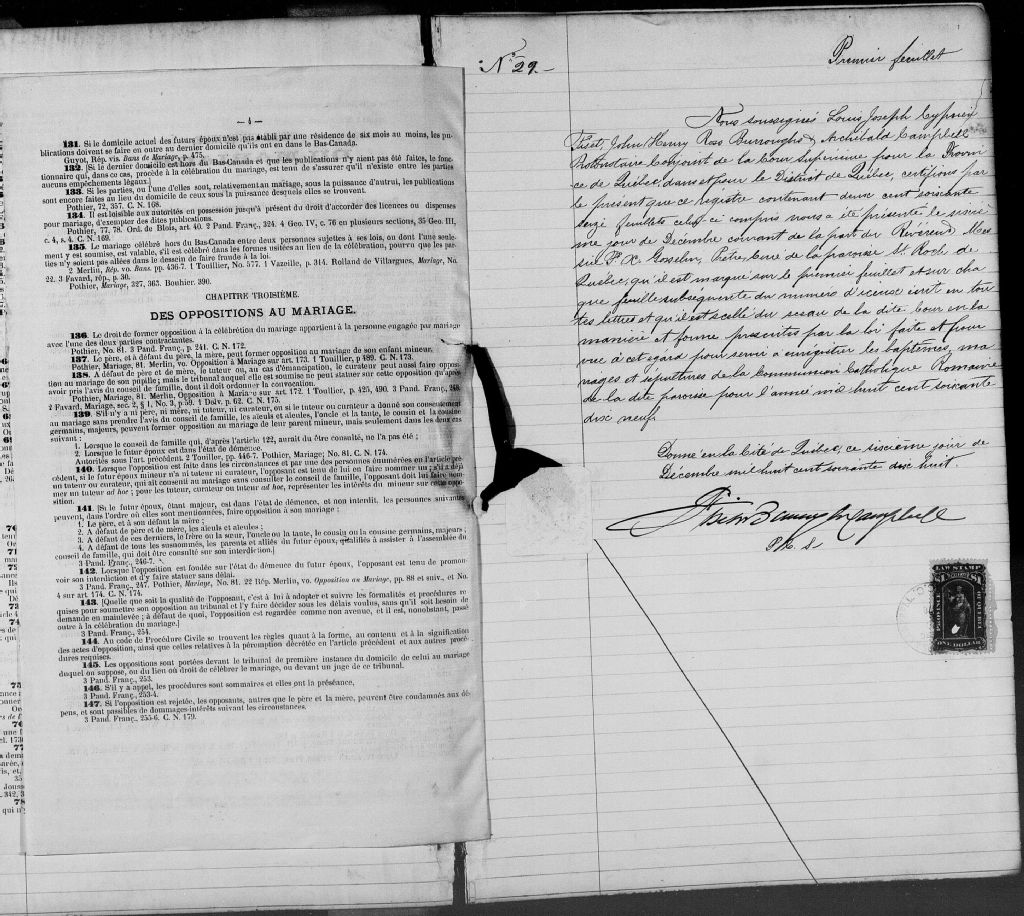 — 4 —
131. Si le domicile actuel des futurs époux n'est pas établi par une résidence de six mois au moins, les pu-
blications doivent se faire en outre au dernier domicile qu'ils ont eu dans le Bas-Canada.
Guyot, Rép. vis. Bans de Mariage, p. 475.
132. [Si le dernier domicile est hors du Bas-Canada et que les publications n'y aient pas été faites, le fonc-
tionnaire qui, dans ce cas, procède à la célébration du mariage, est tenu de s'assurer qu'il n'existe entre les parties
aucuns empêchements légaux.]
133. Si les parties, ou l'une d'elles sont, relativement au mariage, sous la puissance d'autrui, les publications
sont encore faites au lieu du domicile de ceux sous la puissance desquels elles se trouvent.
Pothier, 72, 357. C. N. 168.
134. Il est loisible aux autorités en possession jusqu'à présent du droit d'accorder des licences ou dispenses
pour mariage, d'exempter des dites publications.
Pothier, 77, 78. Ord. de Blois, art. 40. 2 Pand. Franç., 324. 4 Geo. IV, c. 76 en plusieurs sections, 35 Geo. III,
c. 4, s. 4. C. N. 169.
135. Le mariage célébré hors du Bas-Canada entre deux personnes sujettes à ses lois, ou dont l'une seule-
ment y est soumise, est valable, s'il est célébré dans les formes usitées au lieu de la célébration, pourvu que les par-
ties n'y soient pas allées dans le dessein de faire fraude à la loi.
2 Merlin, Rép. vo. Bans. pp. 436-7. 1 Touillier, No. 577. 1 Vazeille, p. 314. Rolland de Villargues, Mariage, No.
22. 3 Favard, rép., p. 30.
Pothier, Mariage, 327, 363. Bouhier. 390.
CHAPITRE TROISIÈME.
DES OPPOSITIONS AU MARIAGE.
136. Le droit de former opposition à la célébration du mariage appartient à la personne engagée par mariage
avec l'une des deux parties contractantes.
Pothier, No. 81. 3 Pand. Franç., p. 241. C. N. 172.
137. Le père, et à défaut du père, la mère, peut former opposition au mariage de son enfant mineur.
Pothier, Mariage, 81. Merlin, vo. Opposition à Mariage sur art. 173. 1 Touillier, p 489. C. N. 173.
138. A défaut de père et de mère, le tuteur ou, au cas d'émancipation, le curateur peut aussi faire opposi-
tion au mariage de son pupille; mais le tribunal auquel elle est soumise ne peut statuer sur cette opposition qu'après
avoir pris l'avis du conseil de famille, dont il doit ordonner la convocation.
Pothier, Mariage, 81. Merlin, Opposition à Mariage sur art. 172. 1 Touillier, p. 425, 490. 3 Pand. Franç., 248.
2 Favard, Mariage, sec. 2, § 1, No. 3, p 59. 1 Dslv. p. 62. C. N. 175.
139. S'il n'y a ni père, ni mère, ni tuteur, ni curateur, ou si le tuteur ou curateur a donné son consentement
au mariage sans prendre l'avis du conseil de famille, les aïeuls et aïeules, l'oncle et la tante, le cousin et la cousine
germains, majeurs, peuvent former opposition au mariage de leur parent mineur, mais seulement dans les deux cas
suivant :
1. Lorsque le conseil de famille qui, d'après l'article 122, aurait du être consulté, ne l'a pas été ;
2. Lorsque le futur époux est dans l'état de démence.
Autorités sous l'art. précédent. 2 Touiller, pp. 446-7. Pothier, Mariage; No. 81. C. N. 174.
140. Lorsque l'opposition est faite dans les circonstances et par une des personnes énumérées en l'article pré-
cédent, si le futur époux mineur n'a ni tuteur ni curateur, l'opposant est tenu de lui en faire nommer un ; s'il a déjà
un tuteur ou curateur, qui ait consenti au mariage sans consulter le conseil de famille, l'opposant doit lui faire nom-
mer un tuteur ad hoc ; pour les tuteur, curateur ou tuteur ad hoc, représenter les intérêts du mineur sur cette oppo-
sition.
141. [Si le futur époux, étant majeur, est dans l'état de démence, et non interdit, les personnes suivantes
peuvent, dans l'ordre où elles sont ici mentionnées, faire opposition à son mariage :
1. Le père, et à son défaut la mère ;
2. A défaut de père et de mère, les aïeuls et aïeules ;
3. A défaut de ces derniers, le frère ou la sœur, l'oncle ou la tante, le cousin ou la cousine germains, majeurs ;
4. A défaut de tous les susnommés, les parents et alliés du futur époux, qualifiés à assister à l'assemblée du
conseil de famille, qui doit être consulté sur son interdiction.]
3 Pand. Franç., 246-7.
142. Lorsque l'opposition est fondée sur l'état de démence du futur époux, l'opposant est tenu de promou-
voir son interdiction et d'y faire statuer sans délai.
3 Pand. Franç., 247. Pothier, Mariage, No. 81. 22 Rép. Merlin, vo. Opposition au Mariage, pp. 88 et suiv., et No.
4 sur art. 174. C. N. 174.
143. [Quelle que soit la qualité de l'opposant, c'est à lui à adopter et suivre les formalités et procédures re-
quises pour soumettre son opposition au tribunal et l'y faire décider sous les délais voulus, sans qu'il soit besoin de
demande en mainlevée ; à défaut de quoi, l'opposition est regardée comme non avenue, et il est, nonobstant, passé
outre à la célébration du mariage.]
3 Pand. Franç., 254.
144. Au code de Procédure Civile se trouvent les règles quant à la forme, au contenu et à la signification
des actes d'opposition, ainsi que celles relatives à la péremption décrétée en l'article précédent et aux autres procé-
dures requises.
145. Les oppositions sont portées devant le tribunal de première instance du domicile de celui au mariage
duquel on suppose, ou du lieu où droit de célébrer le mariage, ou devant un juge de ce tribunal.
3 Pand. Franç., 253.
146. S'il y a appel, les procédures sont sommaires et elles ont la préséance.
3 Pand. Franç., 253-4.
147. Si l'opposition est rejetée, les opposants, autres que le père et la mère, peuvent être condamnés aux dé-
pens, et sont passibles de dommages-intérêts suivant les circonstances.
3 Pand. Franç., 255-6. C. N. 179.
No 29.—
Premier feuillet
Nous soussignés Louis Joseph Cyprien
Fiset, John Henry Ross Burroughs & Archibald Campbell
Protonotaire Conjoint de la Cour Supérieure pour la Provin
ce de Québec, dans et pour le District de Québec, certifions par
le présent que ce régistre contenant deux cent soixante
seize feuillets celui ci compris nous a été présenté le sixiè
me jour de Décembre courant de la part du Révérend Mes
sire F. X. Gosselin, Prêtre, Curé de la paroisse St. Roch de
Québec, qu'il est marqué sur le premier feuillet et sur cha
que feuille subséquente du numéro d'iceux écrit en tou
tes lettres et qu'il est scellé du sceau de la dite Cour en la
manière et forme prescrites par la loi faite et pour
vue à cet égard pour servir à enrégistrer les baptêmes, ma
riages et sépultures de la Communion Catholique Romaine
de la dite paroisse pour l'année mil huit cent soixante
dix neuf.
Donné en la Cité de Québec, ce sixième jour de
Décembre mil huit cent soixante dix huit.
Fiset Burroughs Campbell
P. C. S.
LAW STAMP
$1 $1
PROVINCE
OF QUEBEC
ONE DOLLAR